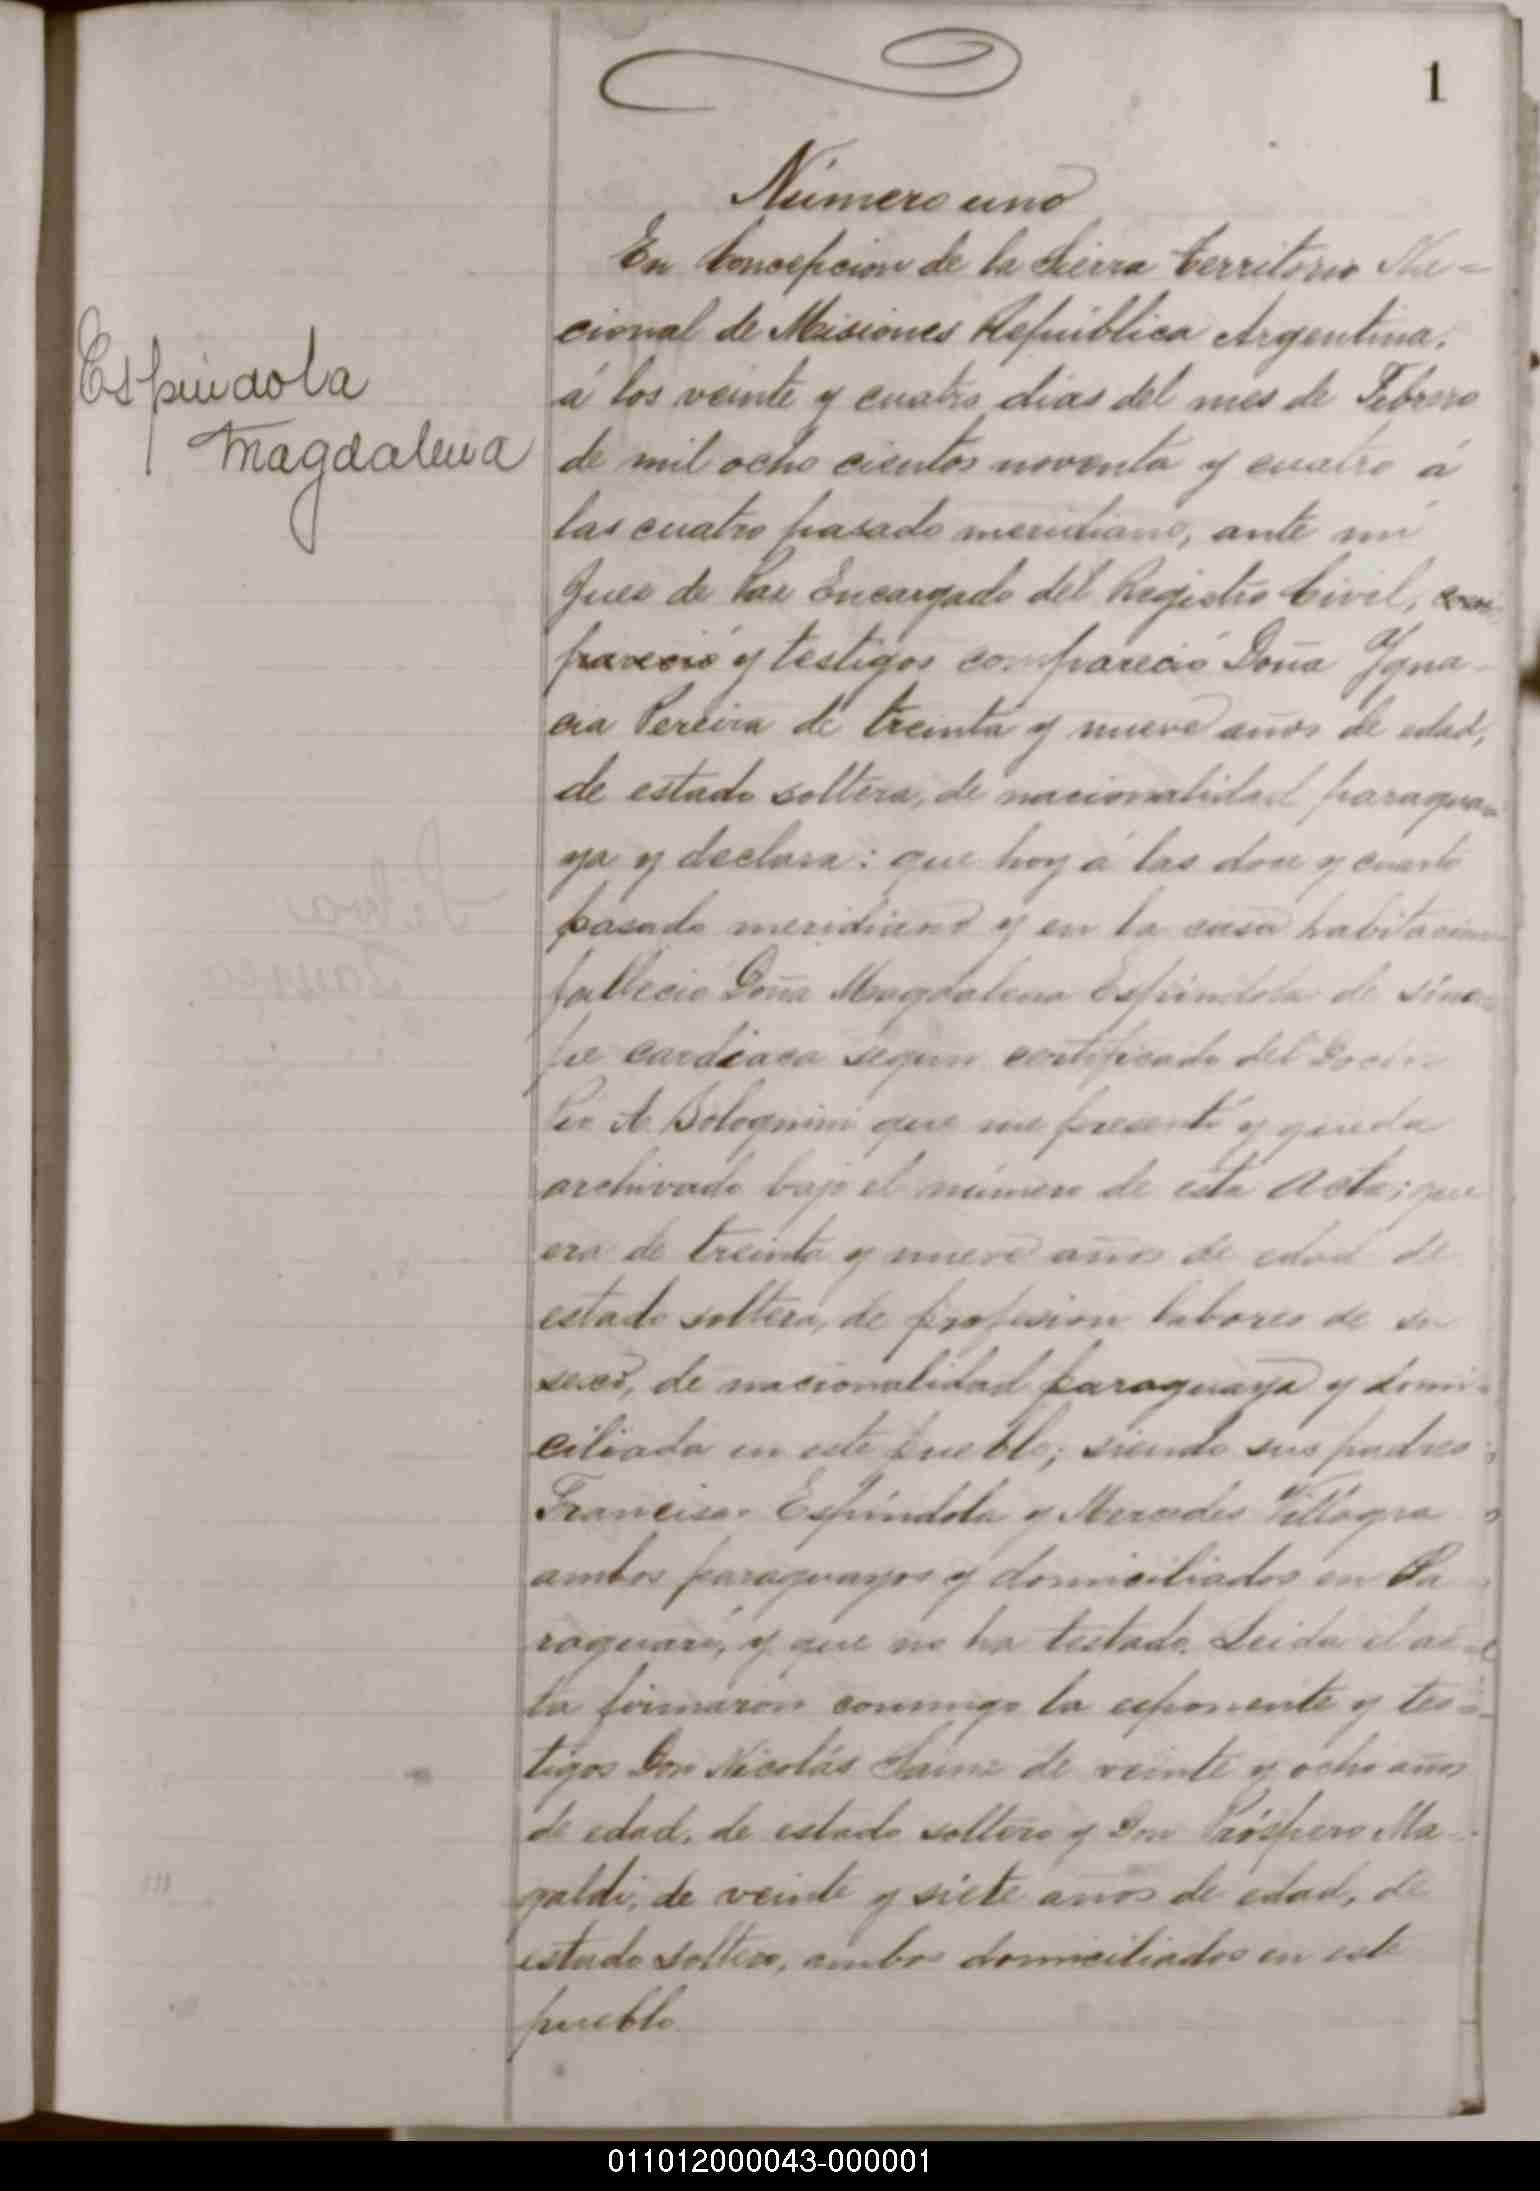 1
Número uno
En Concepcion de la Sierra Territorio Na-
cional de Misiones República Argentina,
Espíndola
á los veinte y cuatro dias del mes de Febrero
Magdalena
de mil ocho cientos noventa y cuatro á
las cuatro pasado meridiano, ante mi
Juez de Paz Encargado del Registro Civil, com
pareció y testigos compareció Doña Ygna-
cia Pereira de treinta y nueve años de edad,
de estado soltera, de nacionalidad paragua-
ya y declara: que hoy á las doce y cuarto
pasado meridiano y en la casa habitacion
falleció Doña Magdalena Espíndola de sínco-
pe cardiaca segun certificado del Doctor
Pio A. Bolognini que me presentó y queda
archivado bajo el número de esta Acta; que
era de treinta y nueve años de edad de
estado soltera, de profesion labores de su
sexo, de nacionalidad paraguaya y domi-
ciliada en este pueblo; siendo sus padres
Francisco Espíndola y Mercedes Villagra
ambos paraguayos y domiciliados en Pa
raguarí, y que no ha testado. Leida el ac-
ta firmaron conmigo la esponente y tes-
tigos Don Nicolás Sainz de veinte y ocho años
de edad, de estado soltero y Don Próspero Ma-
galdi, de veinte y siete años de edad, de
estado soltero, ambos domiciliados en este
pueblo
011012000043-000001